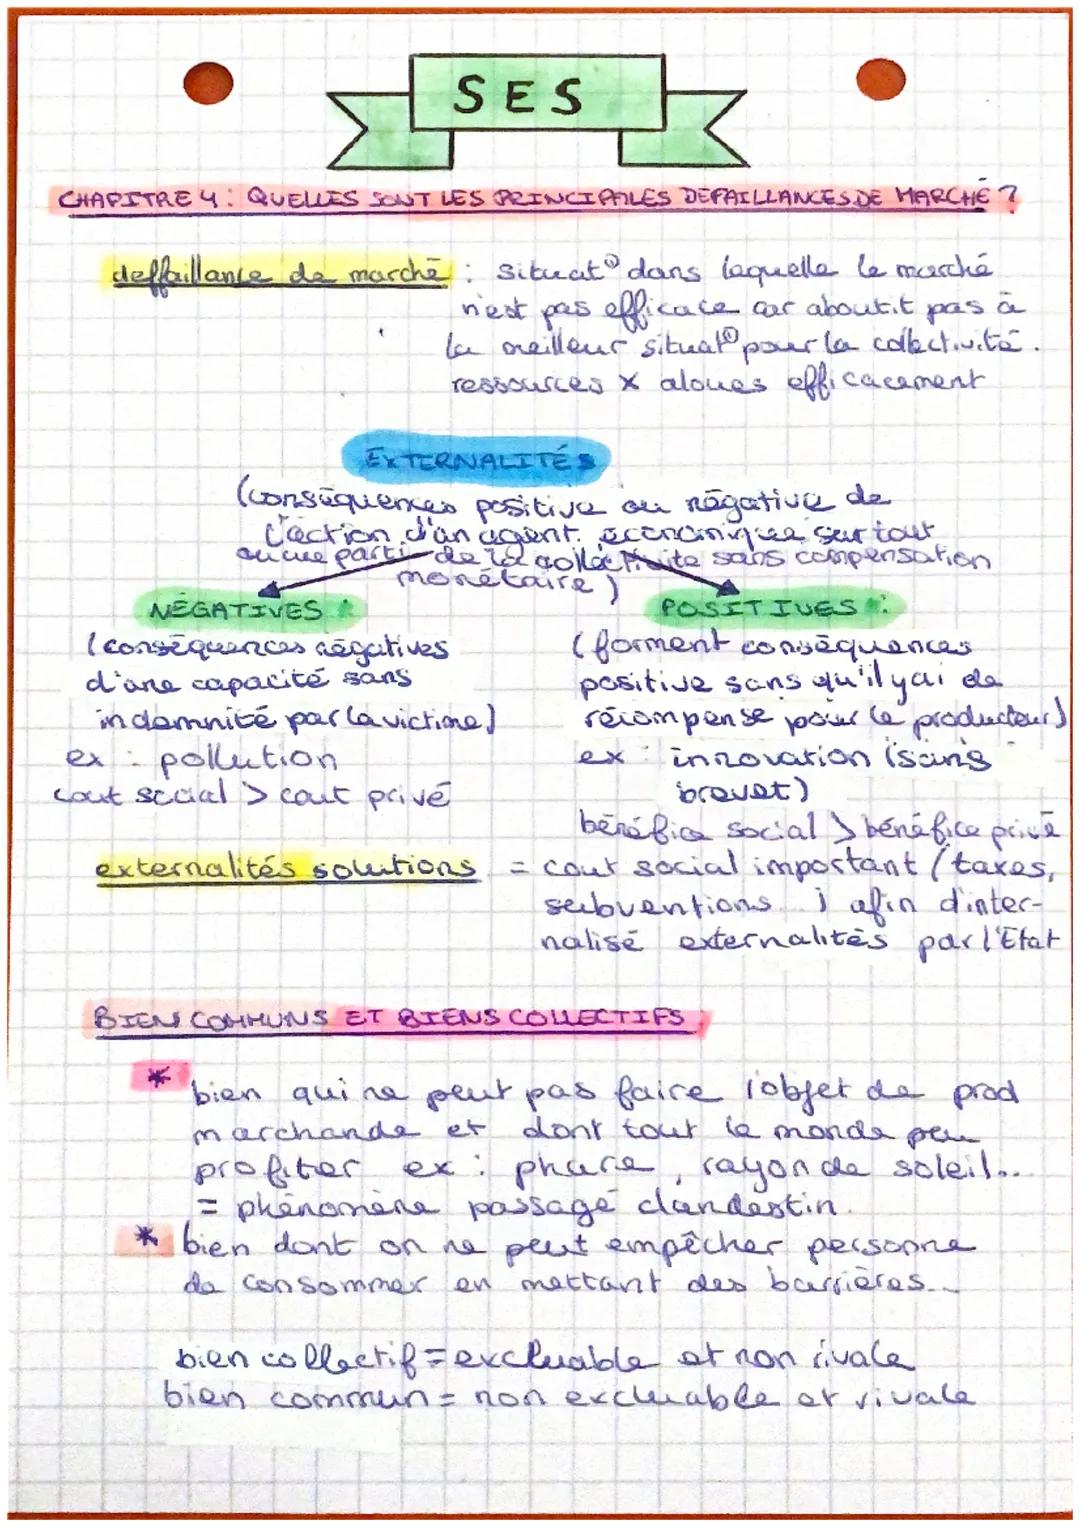 SES
CHAPITRE 4 : QUELLES SONT LES PRINCIPALES DEFAILLANCES DE MARCHÉ ?
deffaillance de marché : situat° dans laquelle le marché
n'est pas efficace car aboutit pas à
la meilleur situat° pour la collectivité.
ressources x aloués efficacement
EXTERNALITÉS
(conséquences positive ou négative de
l'action d'un agent économique sur tout
ou une parti de la collectivite sans compensation
monétaire)
NÉGATIVES :
(conséquences négatives
d'une capacité sans
indemnité par la victime)
ex : pollution
cout social > cout privé
POSITIVES :
(forment conséquences
positive sans qu'il y ai de
récompense pour le producteur)
ex : innovation (sans
brevet)
bénéfice social > bénéfice privé
externalités solutions = cout social important (taxes,
subventions...) afin d'inter-
nalisé externalités par l'Etat
BIEN COMMUNS ET BIENS COLLECTIFS
* bien qui ne peut pas faire l'objet de prod
marchande et dont tout le monde peu
profiter ex : phare, rayon de soleil...
= phénomène passagé clandestin.
* bien dont on ne peut empêcher personne
de consommer en mettant des barrières...
bien collectif = excluable et non rivale
bien commun = non excluable et rivale